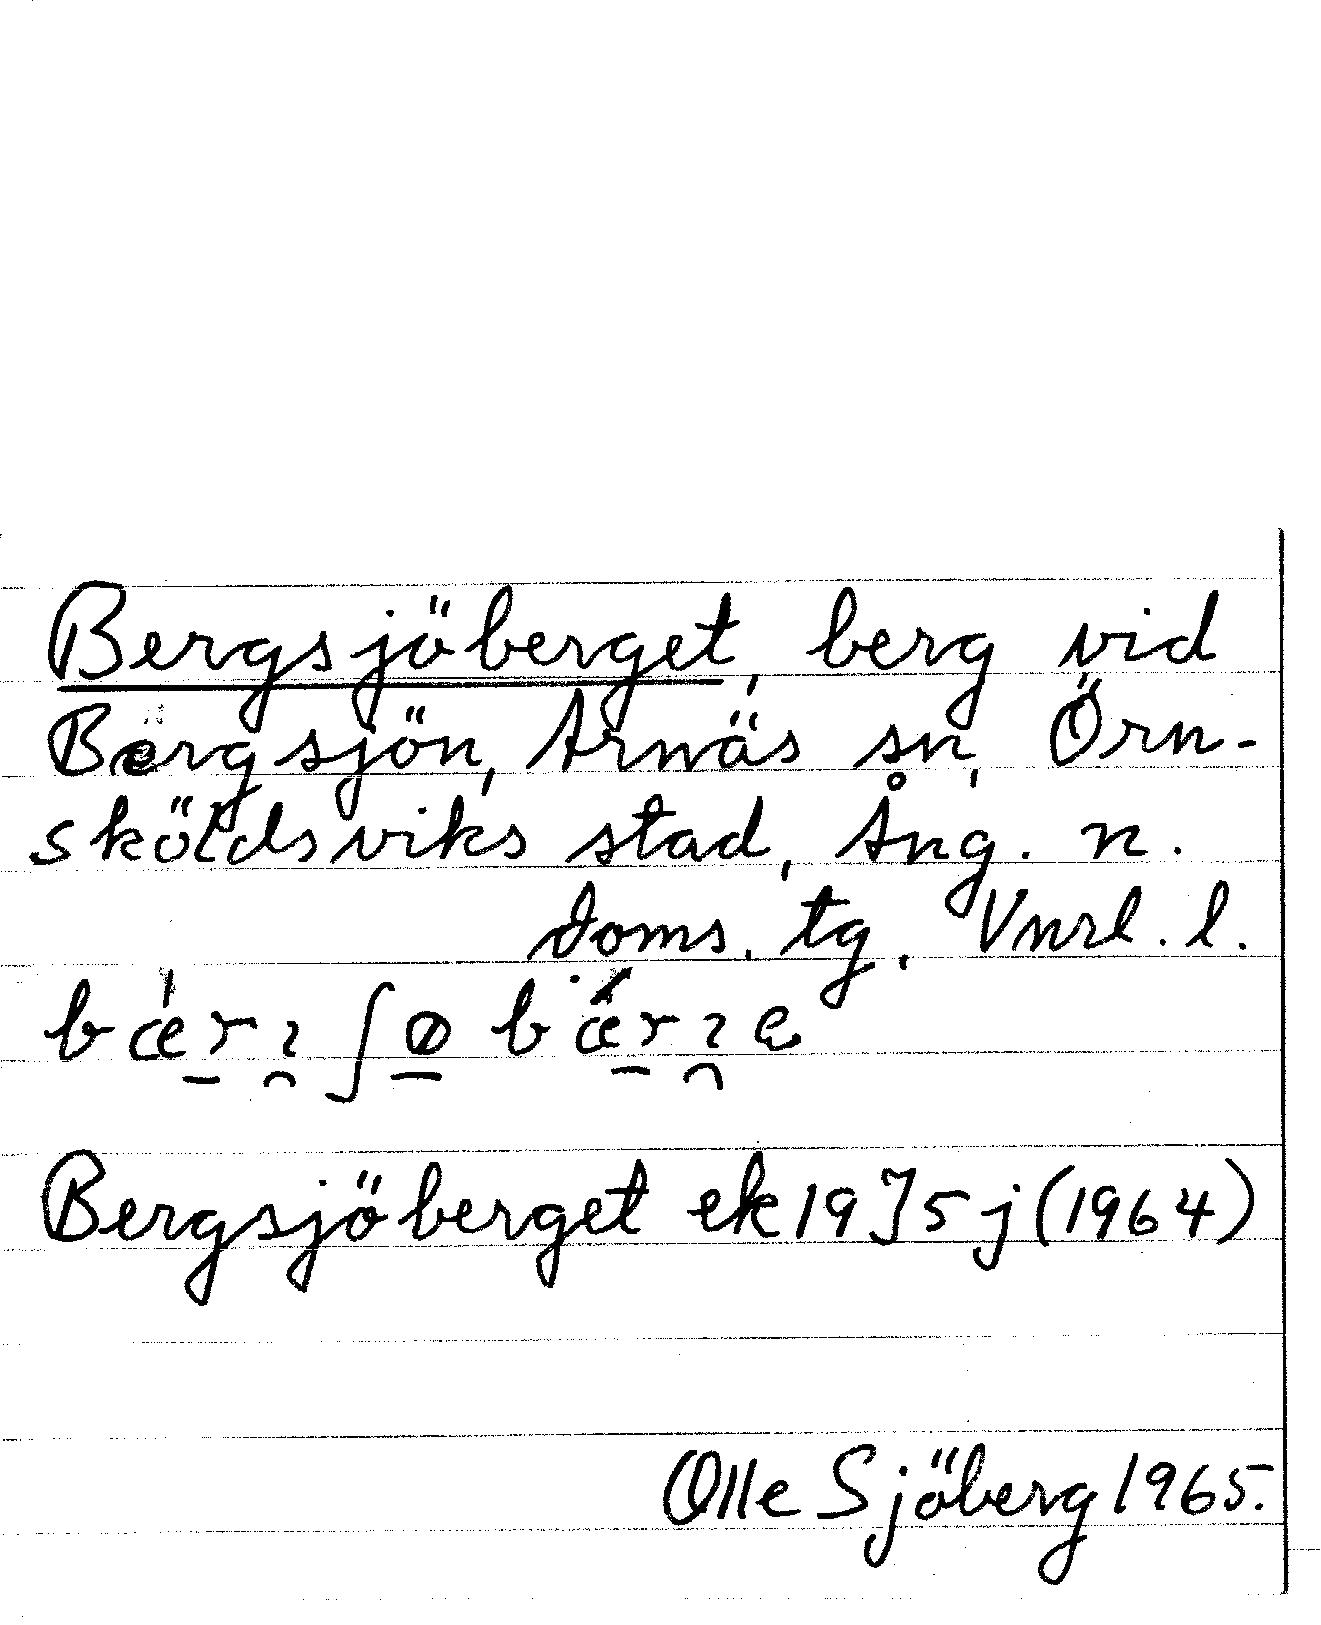 Bergsjöberget, berg vid
Bergsjön, Arnäs sn, Örn-
sköldsviks stad, Ång. n.
doms. tg, Vnrl. l.
Bergsjöberget ek 19 J5j (1964)
Olle Sjöberg 1965.